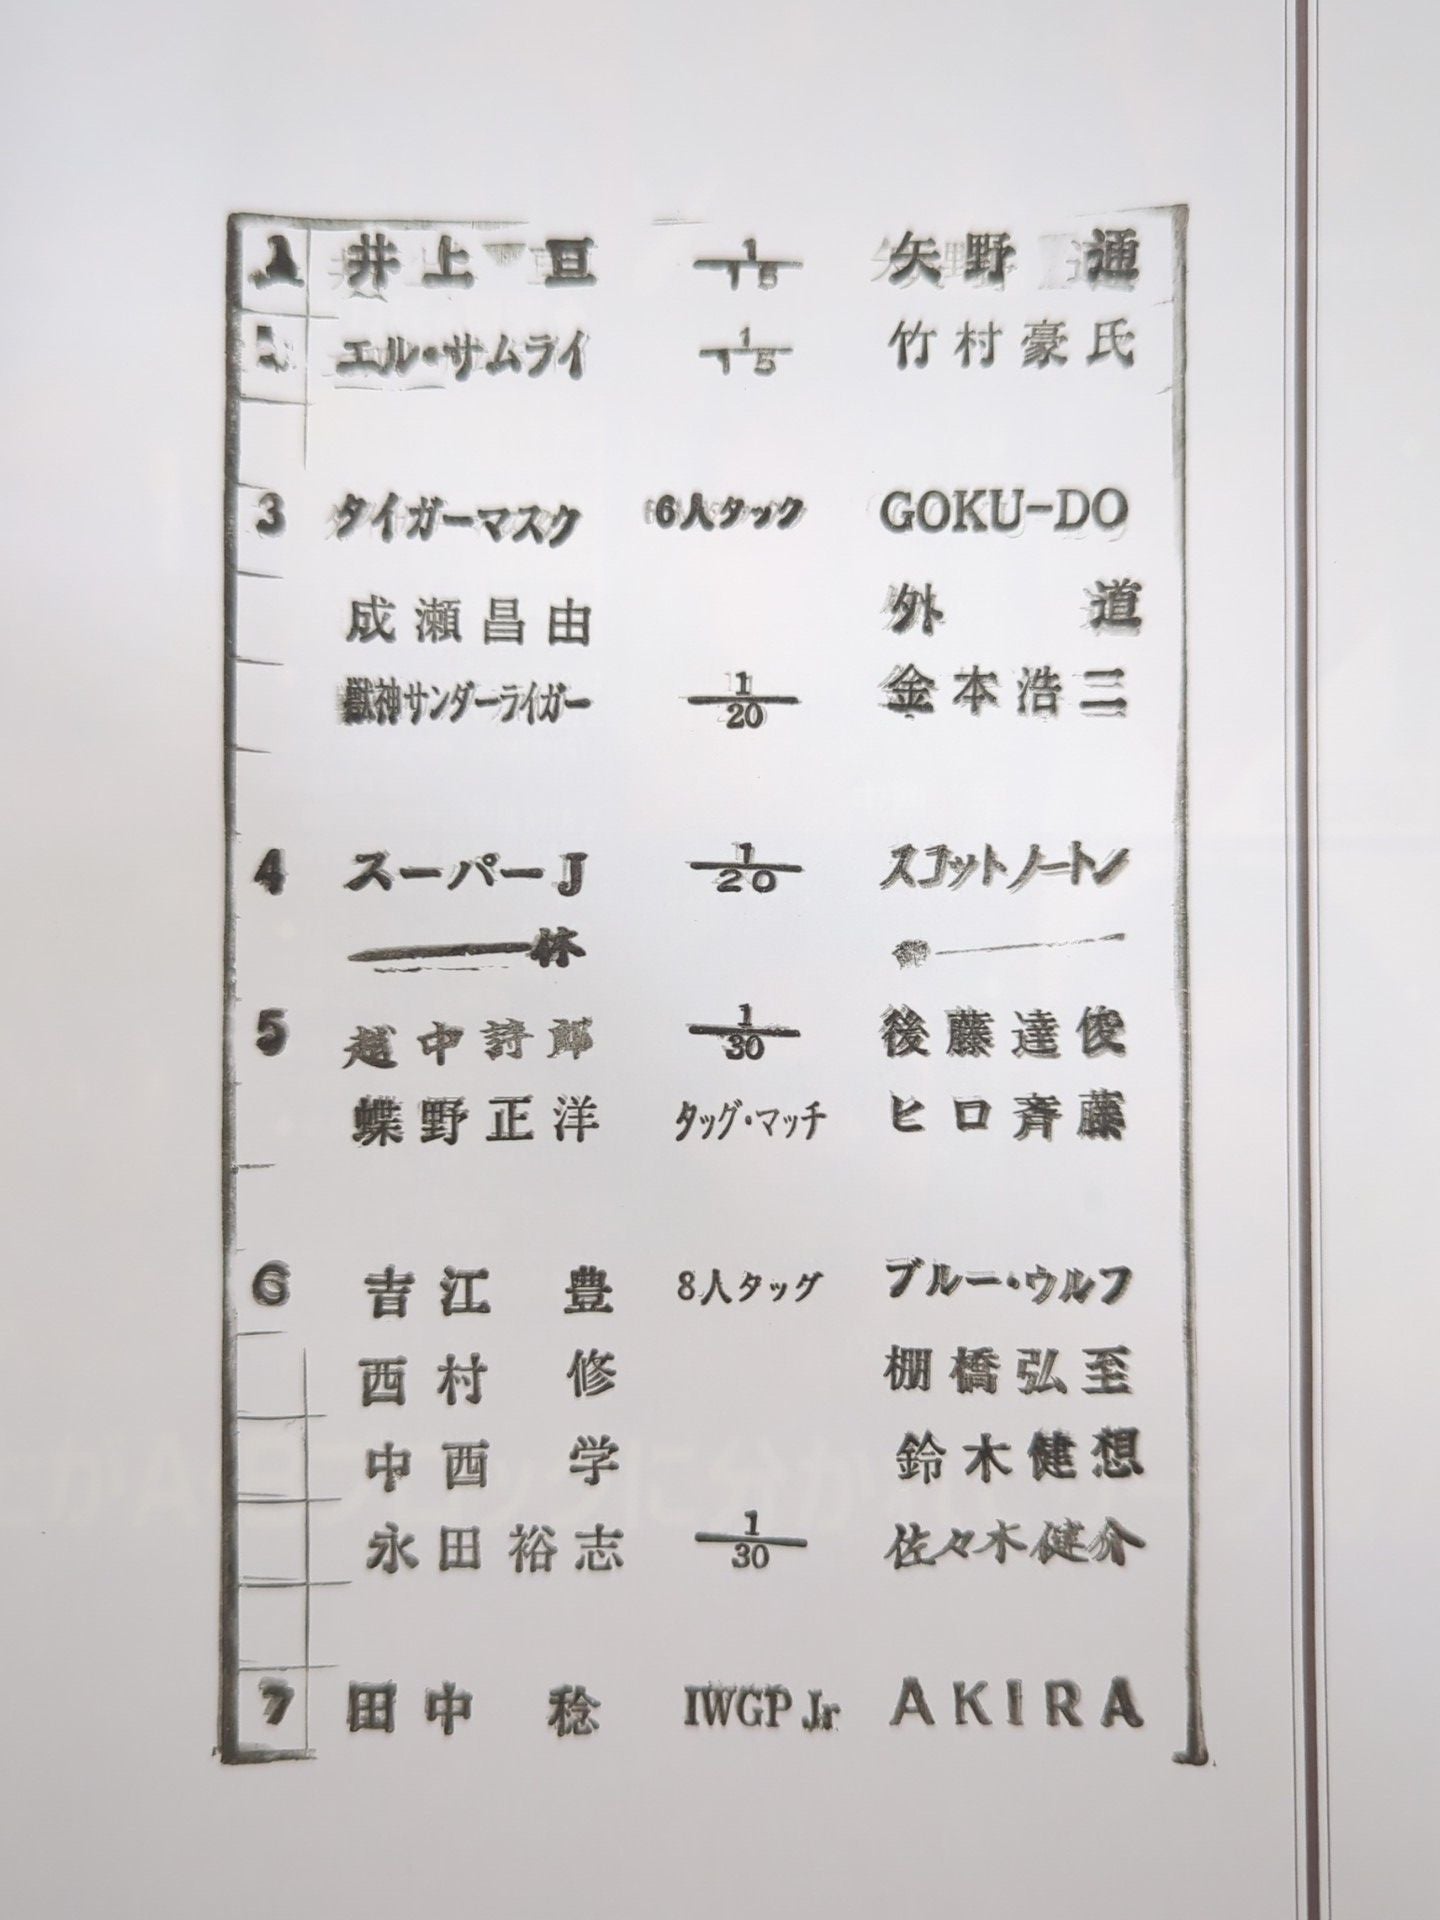 1 井上 亘 1/15 矢野 通
エル・サムライ 1/15 竹村豪氏
3 タイガーマスク 6人タック GOKU-DO
成瀬昌由 外 道
獣神サンダーライガー 1/20 金本浩二
4 スーパーJ 1/20 スコットノートン
休
5 越中詩郎 1/30 後藤達俊
蝶野正洋 タッグ・マッチ ヒロ斉藤
6 吉江 豊 8人タッグ ブルー・ウルフ
西村 修 棚橋弘至
中西 学 鈴木健想
永田裕志 1/30 佐々木健介
7 田中 稔 IWGP Jr AKIRA